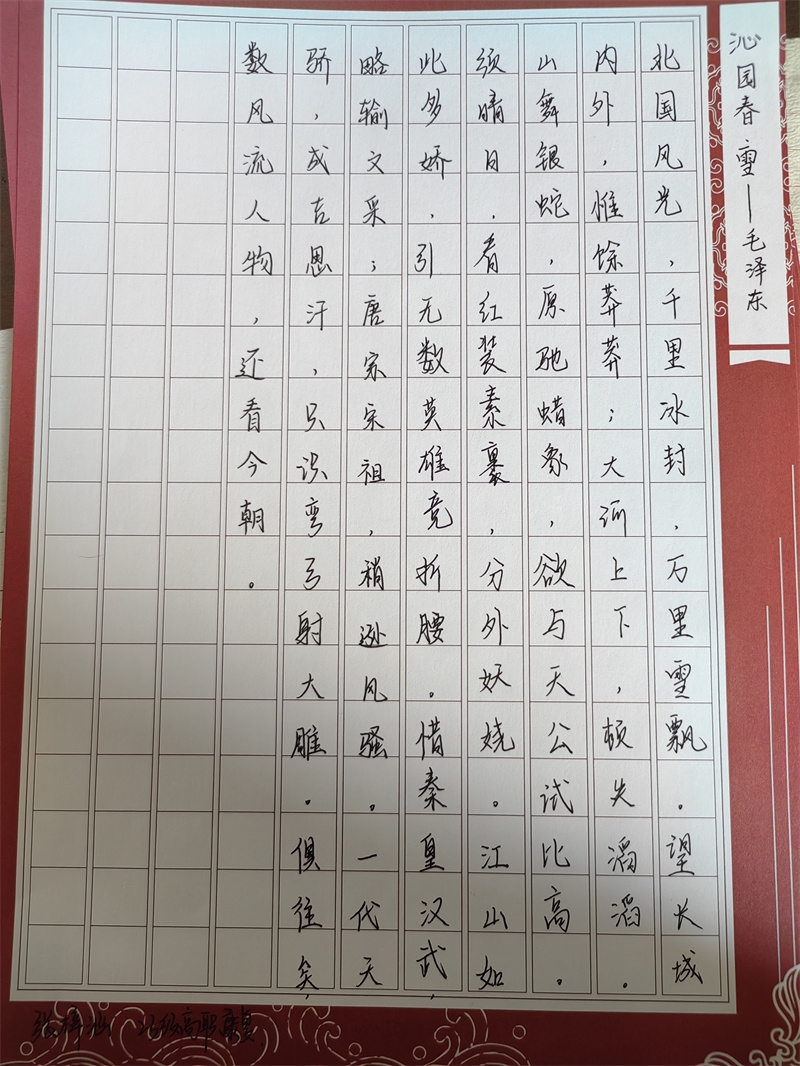 沁园春 雪——毛泽东
北国风光，千里冰封，万里雪飘。望长城
内外，惟馀莽莽；大河上下，顿失滔滔。
山舞银蛇，原驰蜡象，欲与天公试比高。
须晴日，看红装素裹，分外妖娆。江山如
此多娇，引无数英雄竞折腰。惜秦皇汉武，
略输文采；唐宗宋祖，稍逊风骚。一代天
骄，成吉思汗，只识弯弓射大雕。俱往矣，
数风流人物，还看今朝。
级高职康复